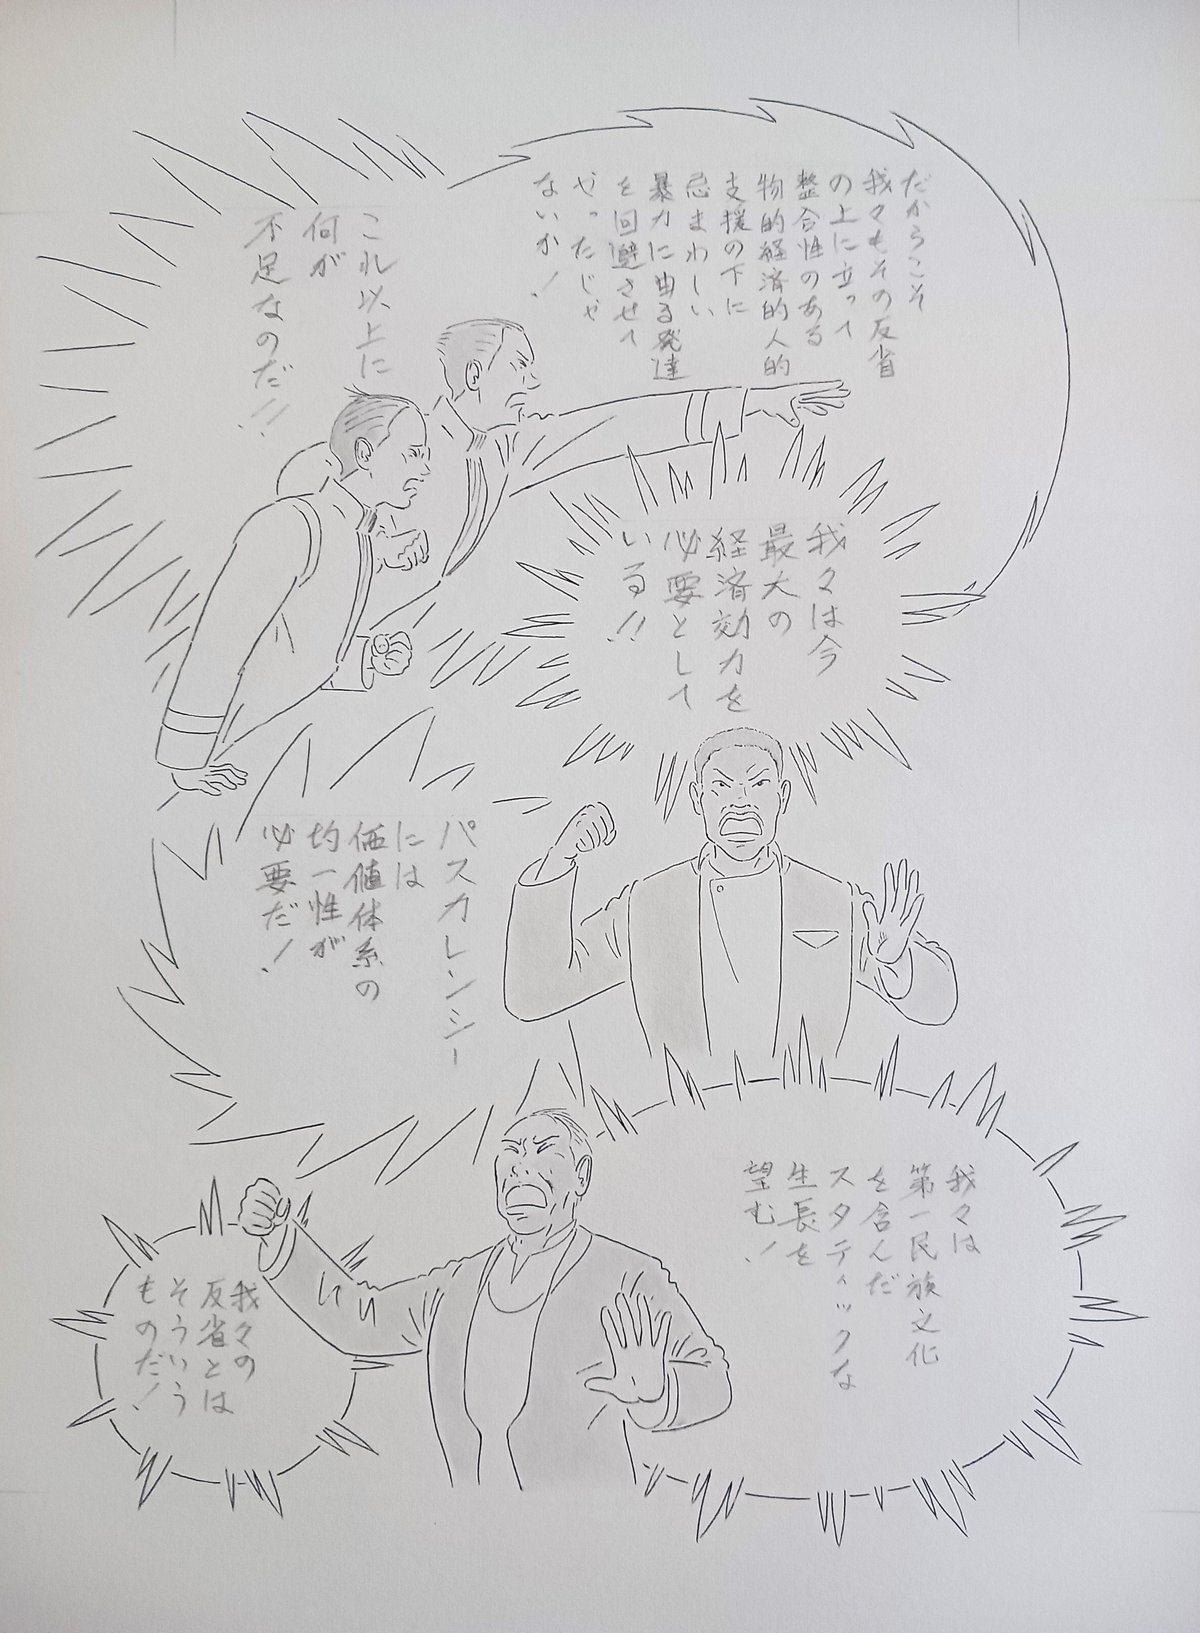 だからこそ
我々もその反省
の上に立って
整合性のある
物的経済的人的
支援の下に
忌まわしい
暴力に由る発達
を回避させて
やったじゃ
ないか!
これ以上に
何が
不足なのだ!!
我々は今
最大の
経済効力を
必要として
いる!!
パスカレンシー
には
価値体系の
均一性が
必要だ!
我々は
第一民族文化
を含んだ
スタティックな
生長を
望む!
我々の
反省とは
そういう
ものだ!